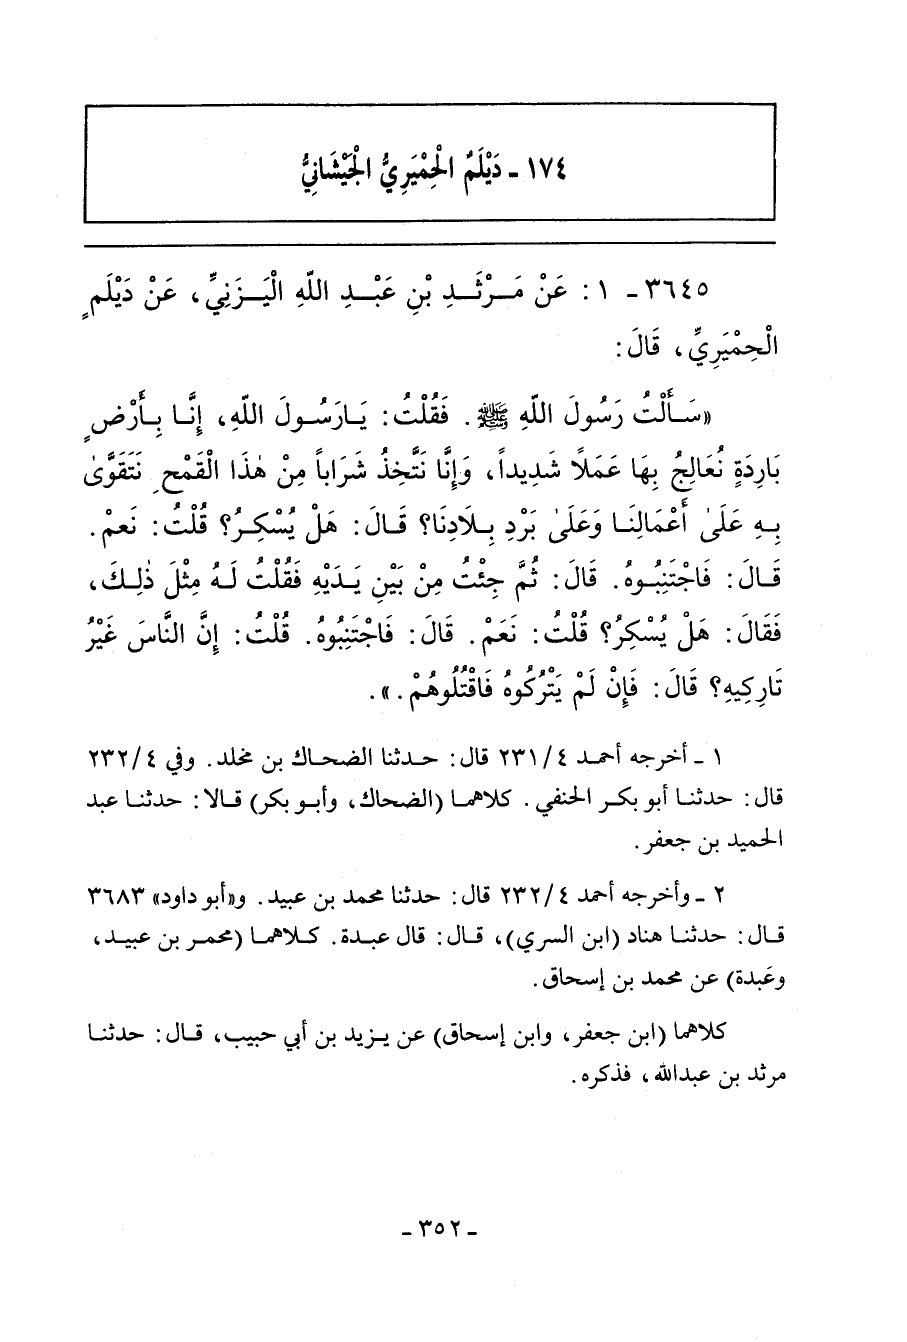 ١٧٤ - دَيْلَمُ الْحِمْيَرِيُّ الْجَيْشَانِيُّ
٣٦٤٥ - ١ : عَنْ مَرْثَدِ بْنِ عَبْدِ اللّهِ الْيَزَنِيِّ، عَنْ دَيْلَمٍ
الْحِمْيَرِيِّ، قَالَ:
«سَأَلْتُ رَسُولَ اللّهِ ﷺ. فَقُلْتُ: يَارَسُولَ اللّهِ، إِنَّا بِأَرْضٍ
بَارِدَةٍ نُعَالِجُ بِهَا عَمَلاً شَدِيداً، وَإِنَّا نَتَّخِذُ شَرَاباً مِنْ هٰذَا الْقَمْحِ نَتَقَوَّىٰ
بِهِ عَلَىٰ أَعْمَالِنَا وَعَلَىٰ بَرْدِ بِلَادِنَا؟ قَالَ: هَلْ يُسْكِرُ؟ قُلْتُ: نَعَمْ.
قَالَ: فَاجْتَنِبُوهُ. قَالَ: ثُمَّ جِئْتُ مِنْ بَيْنِ يَدَيْهِ فَقُلْتُ لَهُ مِثْلَ ذٰلِكَ،
فَقَالَ: هَلْ يُسْكِرُ؟ قُلْتُ: نَعَمْ. قَالَ: فَاجْتَنِبُوهُ. قُلْتُ: إِنَّ النَّاسَ غَيْرُ
تَارِكِيهِ؟ قَالَ: فَإِنْ لَمْ يَتْرُكُوهُ فَاقْتُلُوهُمْ.».
١ - أخرجه أحمد ٢٣١/٤ قال: حدثنا الضحاك بن مخلد. وفي ٢٣٢/٤
قال: حدثنا أبو بكر الحنفي. كلاهما (الضحاك، وأبو بكر) قالا: حدثنا عبد
الحميد بن جعفر.
٢ - وأخرجه أحمد ٢٣٢/٤ قال: حدثنا محمد بن عبيد. و«أبو داود» ٣٦٨٣
قال: حدثنا هناد (ابن السري)، قال: قال عبدة. كلاهما (محمر بن عبيد،
وعَبدة) عن محمد بن إسحاق.
كلاهما (ابن جعفر، وابن إسحاق) عن يزيد بن أبي حبيب، قال: حدثنا
مرثد بن عبدالله، فذكره.
- ٣٥٢ -